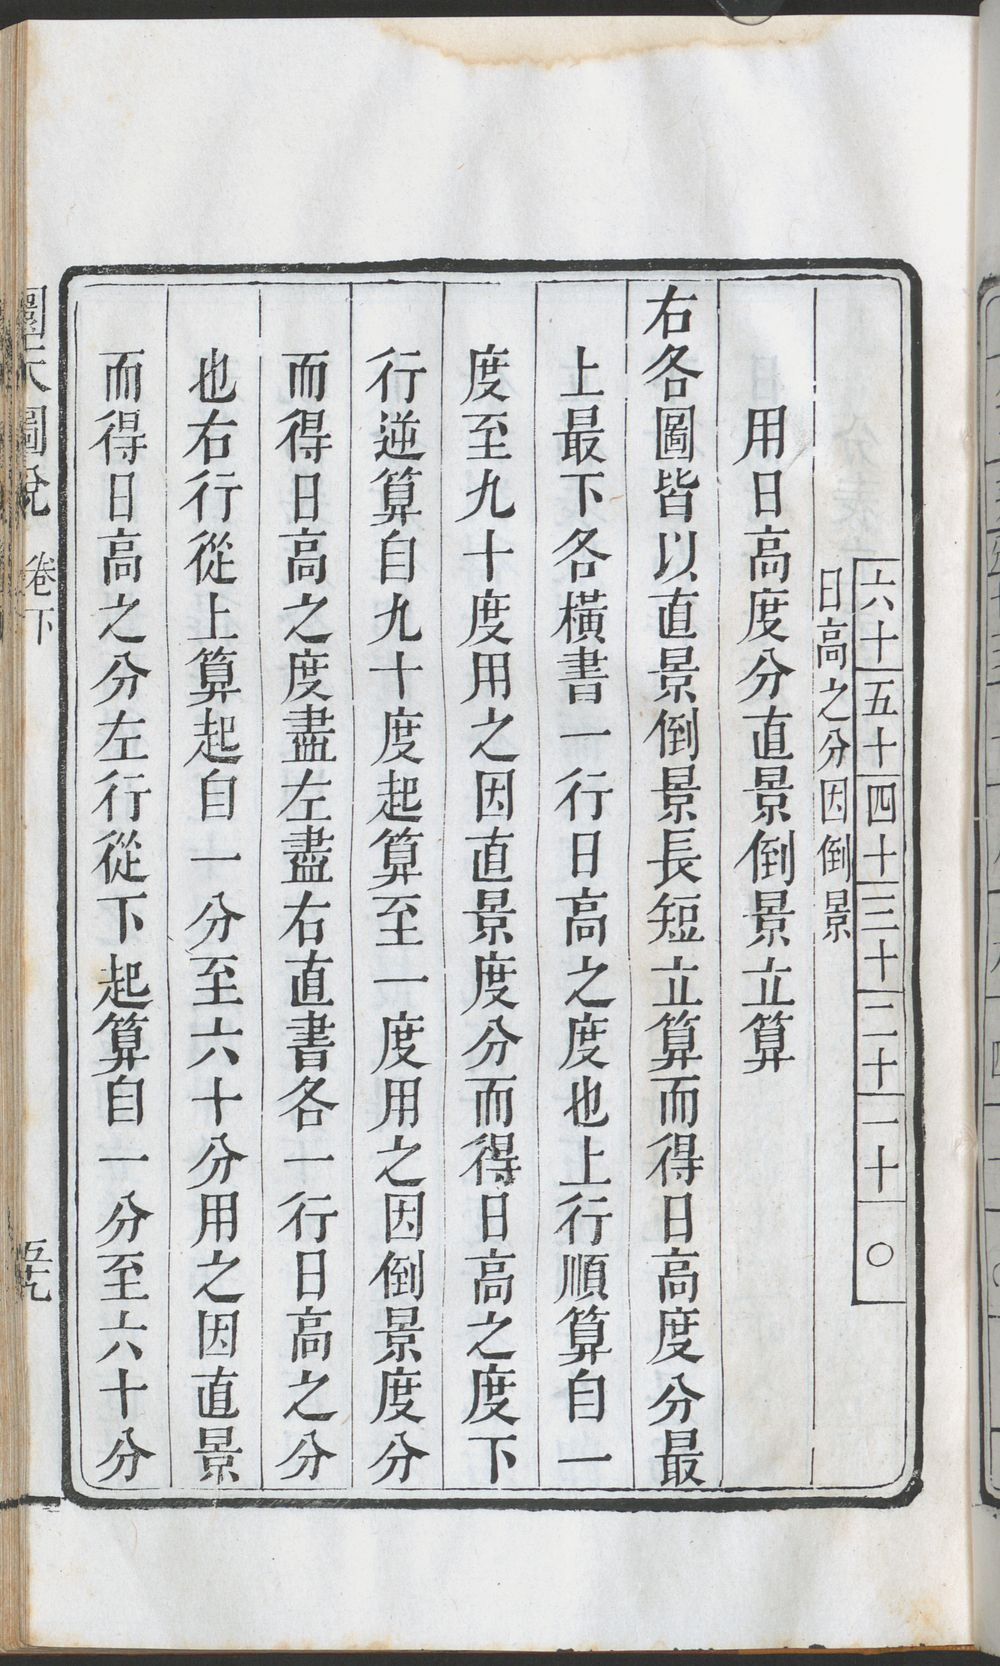 六十五十四十三十二十一十〇
日高之分因倒景
用日高度分直景倒景立算
右各圖皆以直景倒景長短立算而得日高度分最
上最下各橫書一行日高之度也上行順算自一
度至九十度用之因直景度分而得日高之度下
行逆算自九十度起算至一度用之因倒景度分
而得日高之度盡左盡右直書各一行日高之分
也右行從上算起自一分至六十分用之因直景
而得日高之分左行從下起算自一分至六十分
圜天圖說
卷下
五九